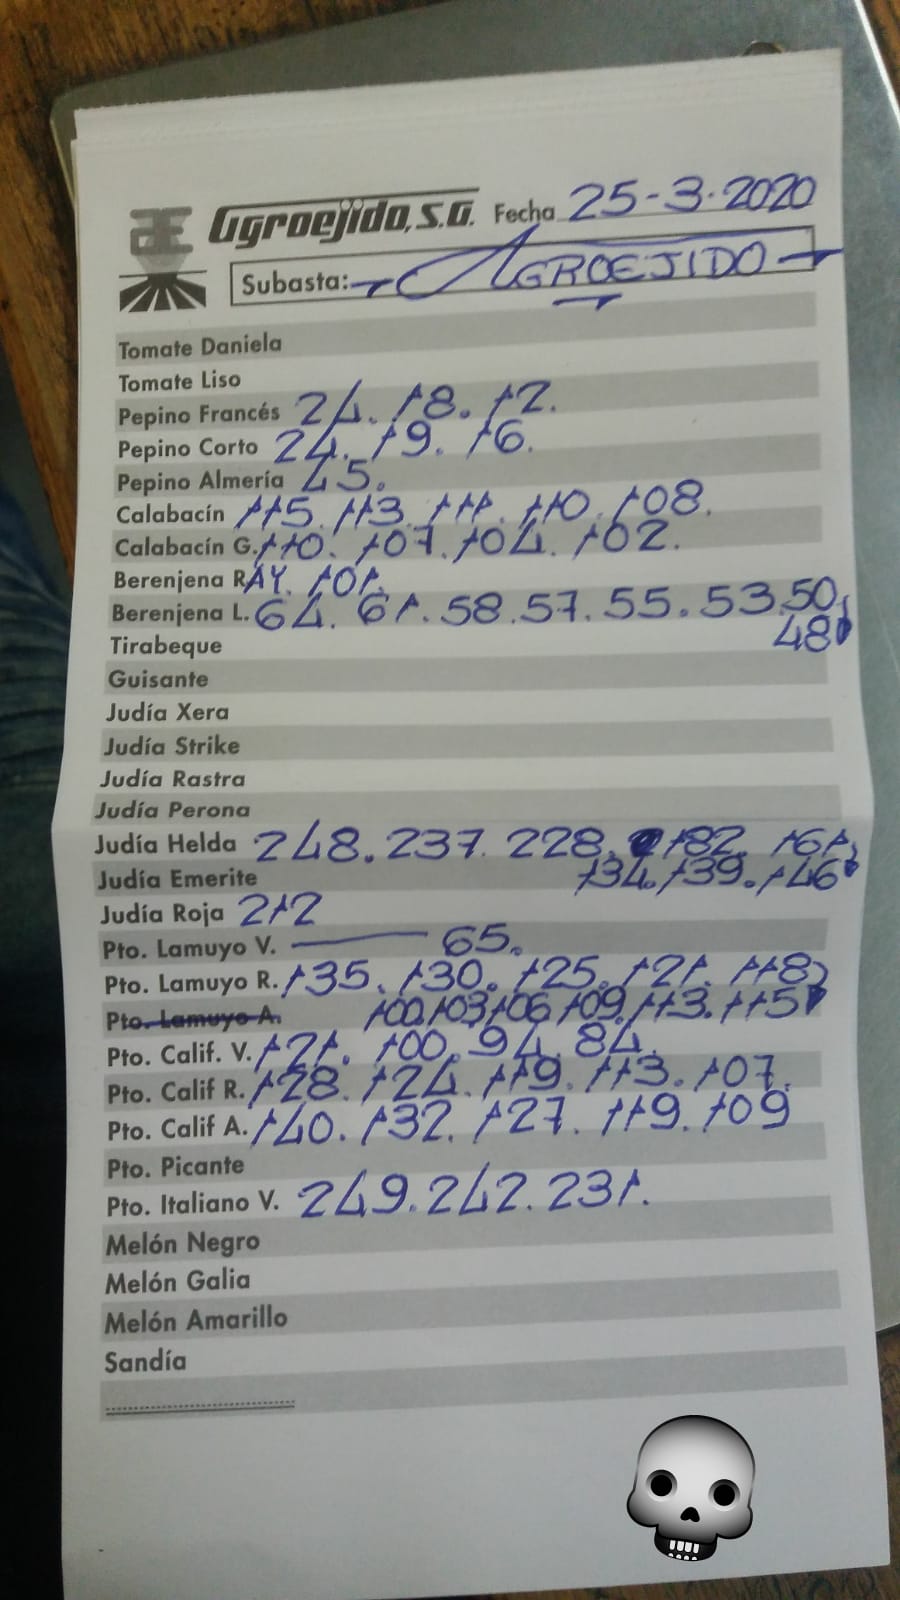 Agroejido, S.A. Fecha 25-3-2020
Subasta: AGROEJIDO
Tomate Daniela
Tomate Liso
Pepino Francés 24. 18. 12.
Pepino Corto 24. 19. 16.
Pepino Almería 45.
Calabacín 115. 113. 111. 110. 108.
Calabacín G. 110. 107. 104. 102.
Berenjena RAY. 101.
Berenjena L. 64. 61. 58. 57. 55. 53. 50,
48
Tirabeque
Guisante
Judía Xera
Judía Strike
Judía Rastra
Judía Perona
Judía Helda 248. 237. 228. 182. 161,
Judía Emerite 134. 139. 146
Judía Roja 212
Pto. Lamuyo V. — 65.
Pto. Lamuyo R. 135. 130. 125. 121. 118,
Pto. Lamuyo A. 100. 103. 106. 109. 113. 115
Pto. Calif. V. 121. 100. 94. 84.
Pto. Calif R. 128. 124. 119. 113. 107.
Pto. Calif A. 140. 132. 127. 119. 109
Pto. Picante
Pto. Italiano V. 249. 242. 231.
Melón Negro
Melón Galia
Melón Amarillo
Sandía